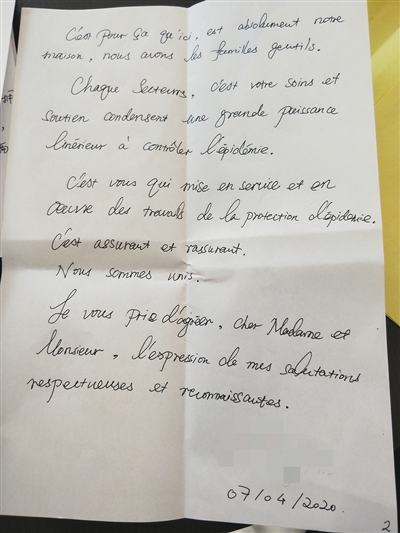 C'est pour ça qu'ici, est absolument notre
maison, nous avons les familles gentils.
Chaque Secteurs, c'est votre soins et
soutien condensent une grande puissance
linérieur à contrôler l'épidémie.
C'est vous qui mise en service et en
œuvre des travails de la protection d'épidemie.
C'est assurant et rassurant.
Nous sommes unis.
Je vous prie d'agréer, cher Madame et
Monsieur, l'expression de mes salutations
respectueuses et reconnaissantes.
07/04/2020.
2